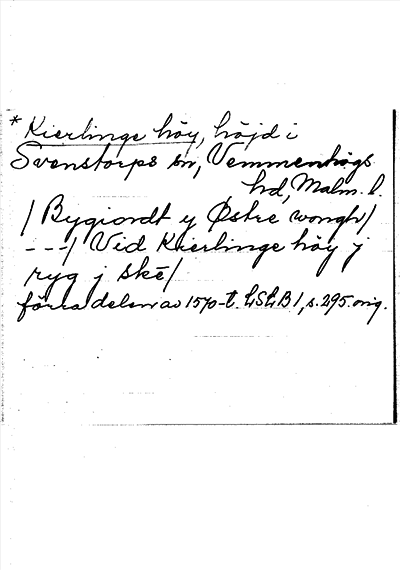 * Kierlinge höy, höjd i
Svenstorps sn, Vemmenhögs
hd, Malm. l.
/ Bygiordt y Østre wongh/
---/ Vid Kierlinge höy j
ryg j skē/
förra delen av 1570-t. LSLB 1, s. 295 orig.